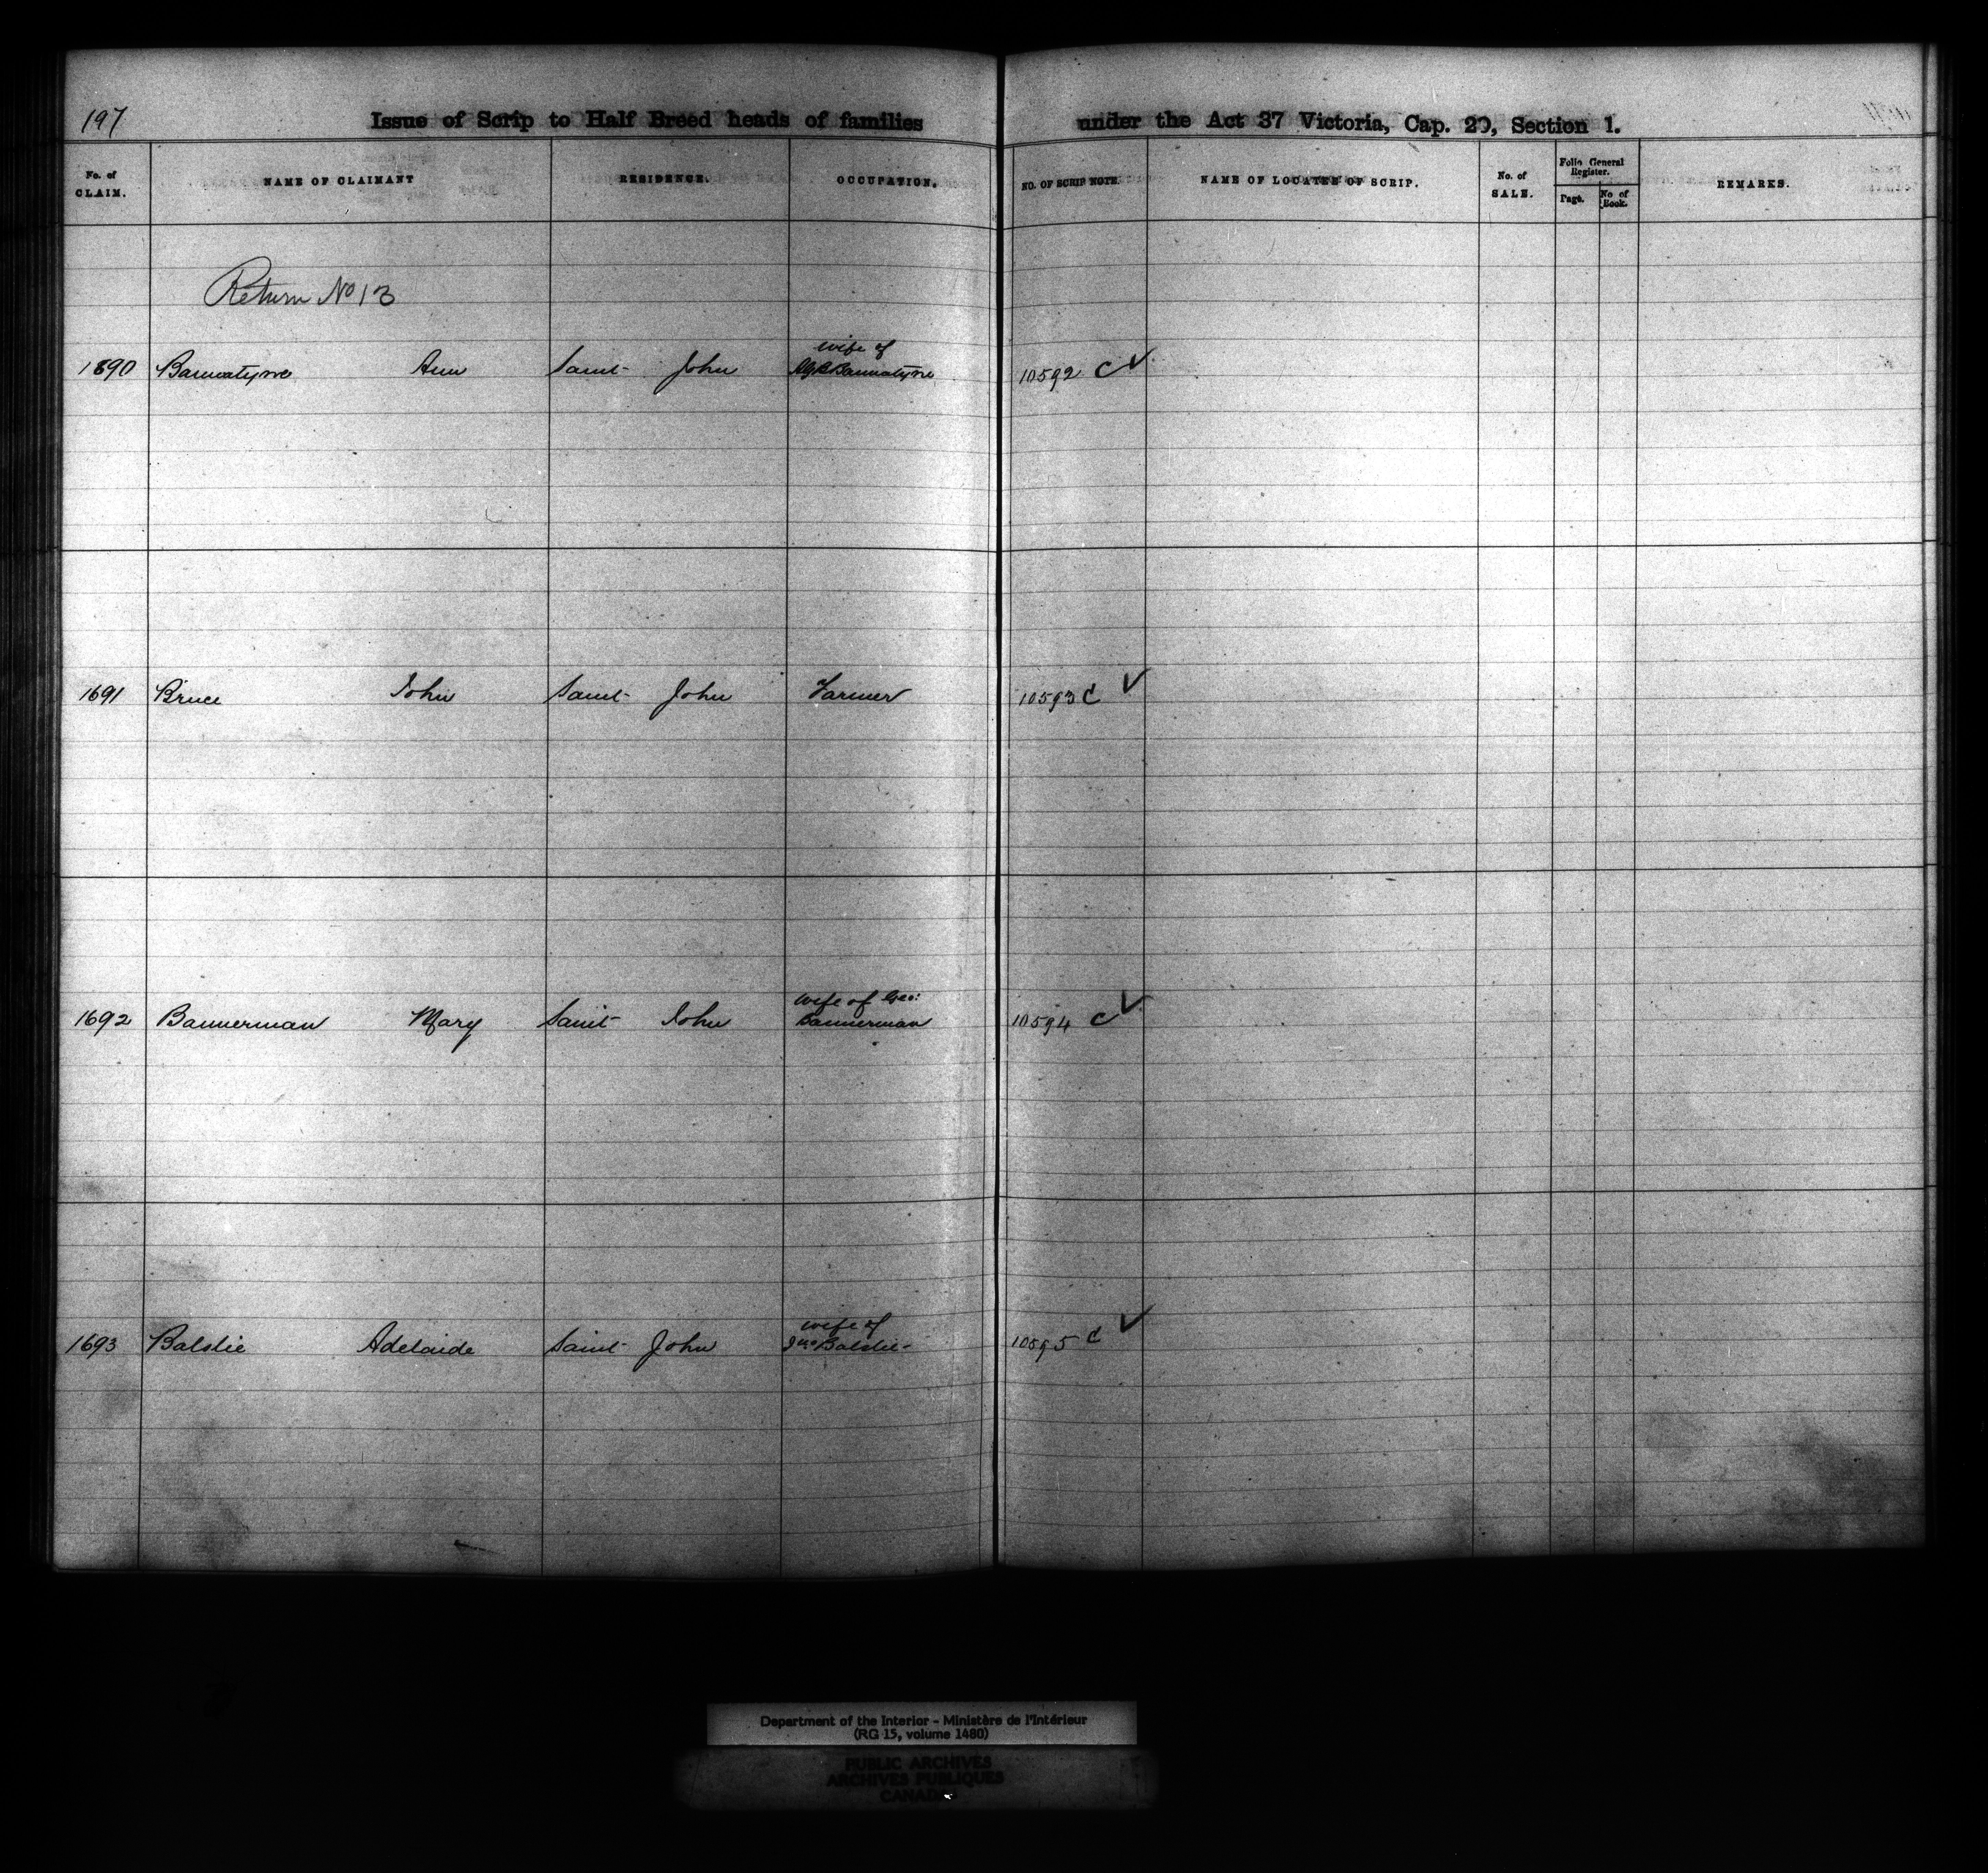 197
Issue of Scrip to Half Breed heads of families under the Act 37 Victoria, Cap. 20, Section 1.
No. of CLAIM. NAME OF CLAIMANT RESIDENCE. OCCUPATION. NO. OF SCRIP NOTE. NAME OF LOCATEE OF SCRIP. No. of SALE. Folio General Register. Page. No of Book. REMARKS.
Return No 13
wife of
1690 Bannatyne Ann Saint John AGB Bannatyne 10592 C ✓
1691 Bruce John Saint John Farmer 10593 C ✓
wife of Geo:
1692 Bannerman Mary Saint John Bannerman 10594 C ✓
wife of
1693 Balslie Adelaide Saint John Jno Balslie 10595 C ✓
Department of the Interior - Ministère de l'Intérieur
(RG 15, volume 1480)
PUBLIC ARCHIVES
ARCHIVES PUBLIQUES
CANADA